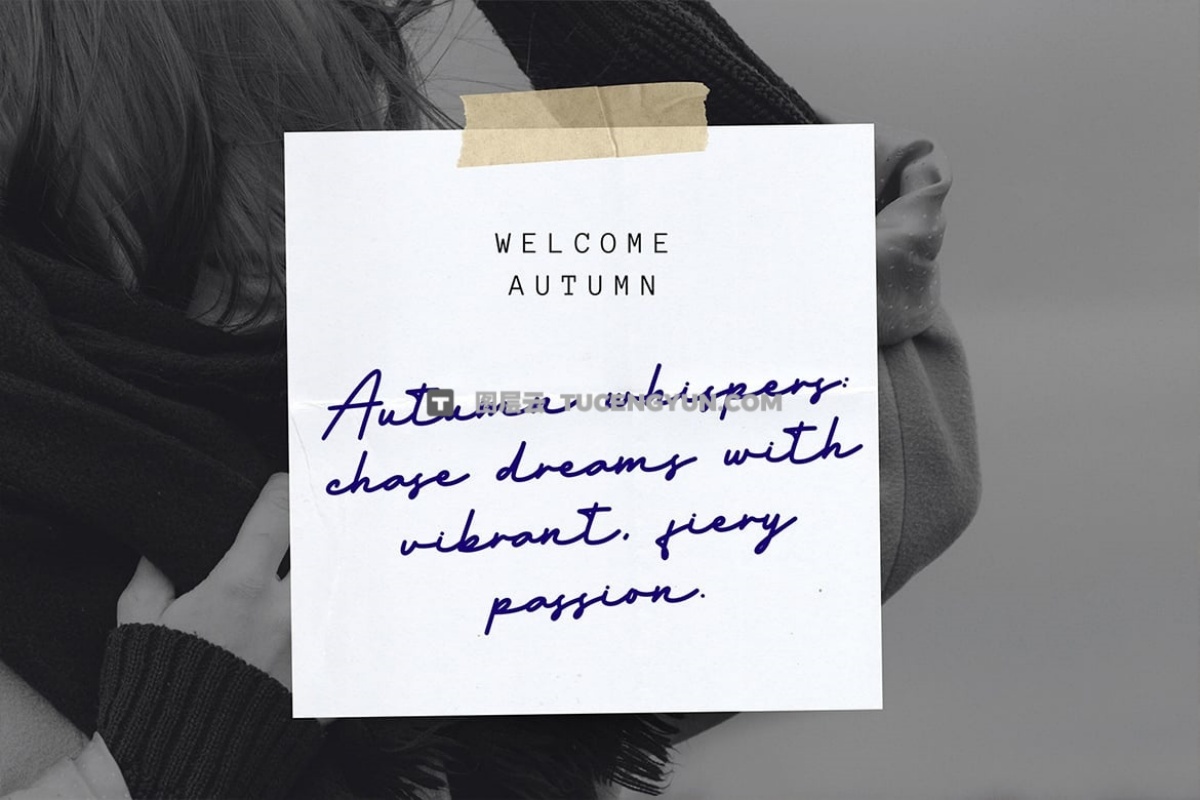 WELCOME
AUTUMN
Autumn whispers:
T 图层云 TUCENGYUN.COM
chase dreams with
vibrant, fiery
passion.